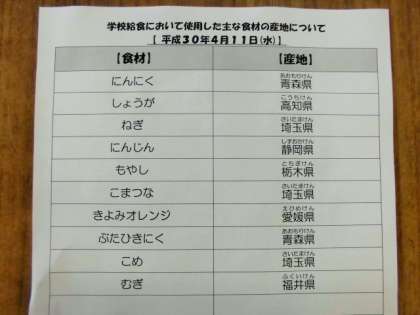 学校給食において使用した主な食材の産地について
【 平成30年4月11日(水) 】
【食材】 【産地】
にんにく 青森県
あおもりけん
しょうが 高知県
こうちけん
ねぎ 埼玉県
さいたまけん
にんじん 静岡県
しずおかけん
もやし 栃木県
とちぎけん
こまつな 埼玉県
さいたまけん
きよみオレンジ 愛媛県
えひめけん
ぶたひきにく 青森県
あおもりけん
こめ 埼玉県
さいたまけん
むぎ 福井県
ふくいけん